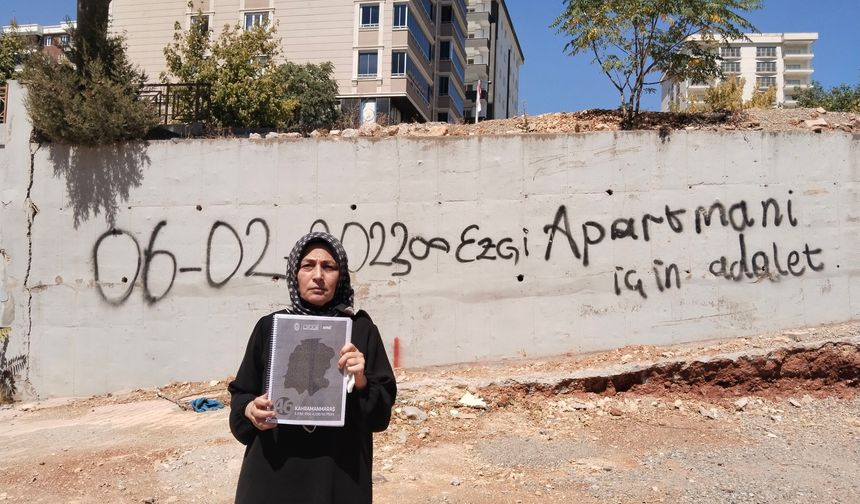 06-02-2023 ∞ Ezgi Apartmanı
için adalet
46 KAHRAMANMARAŞ